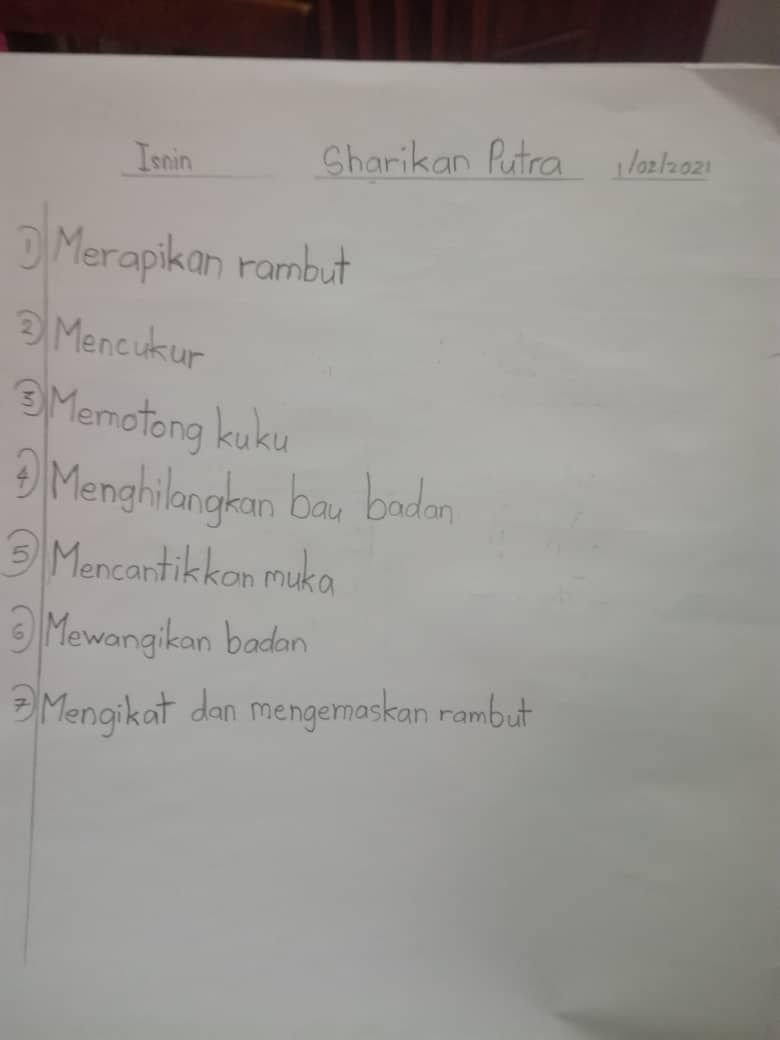 Isnin Sharikan Putra 1/02/2021
① Merapikan rambut
② Mencukur
③ Memotong kuku
④ Menghilangkan bau badan
⑤ Mencantikkan muka
⑥ Mewangikan badan
⑦ Mengikat dan mengemaskan rambut